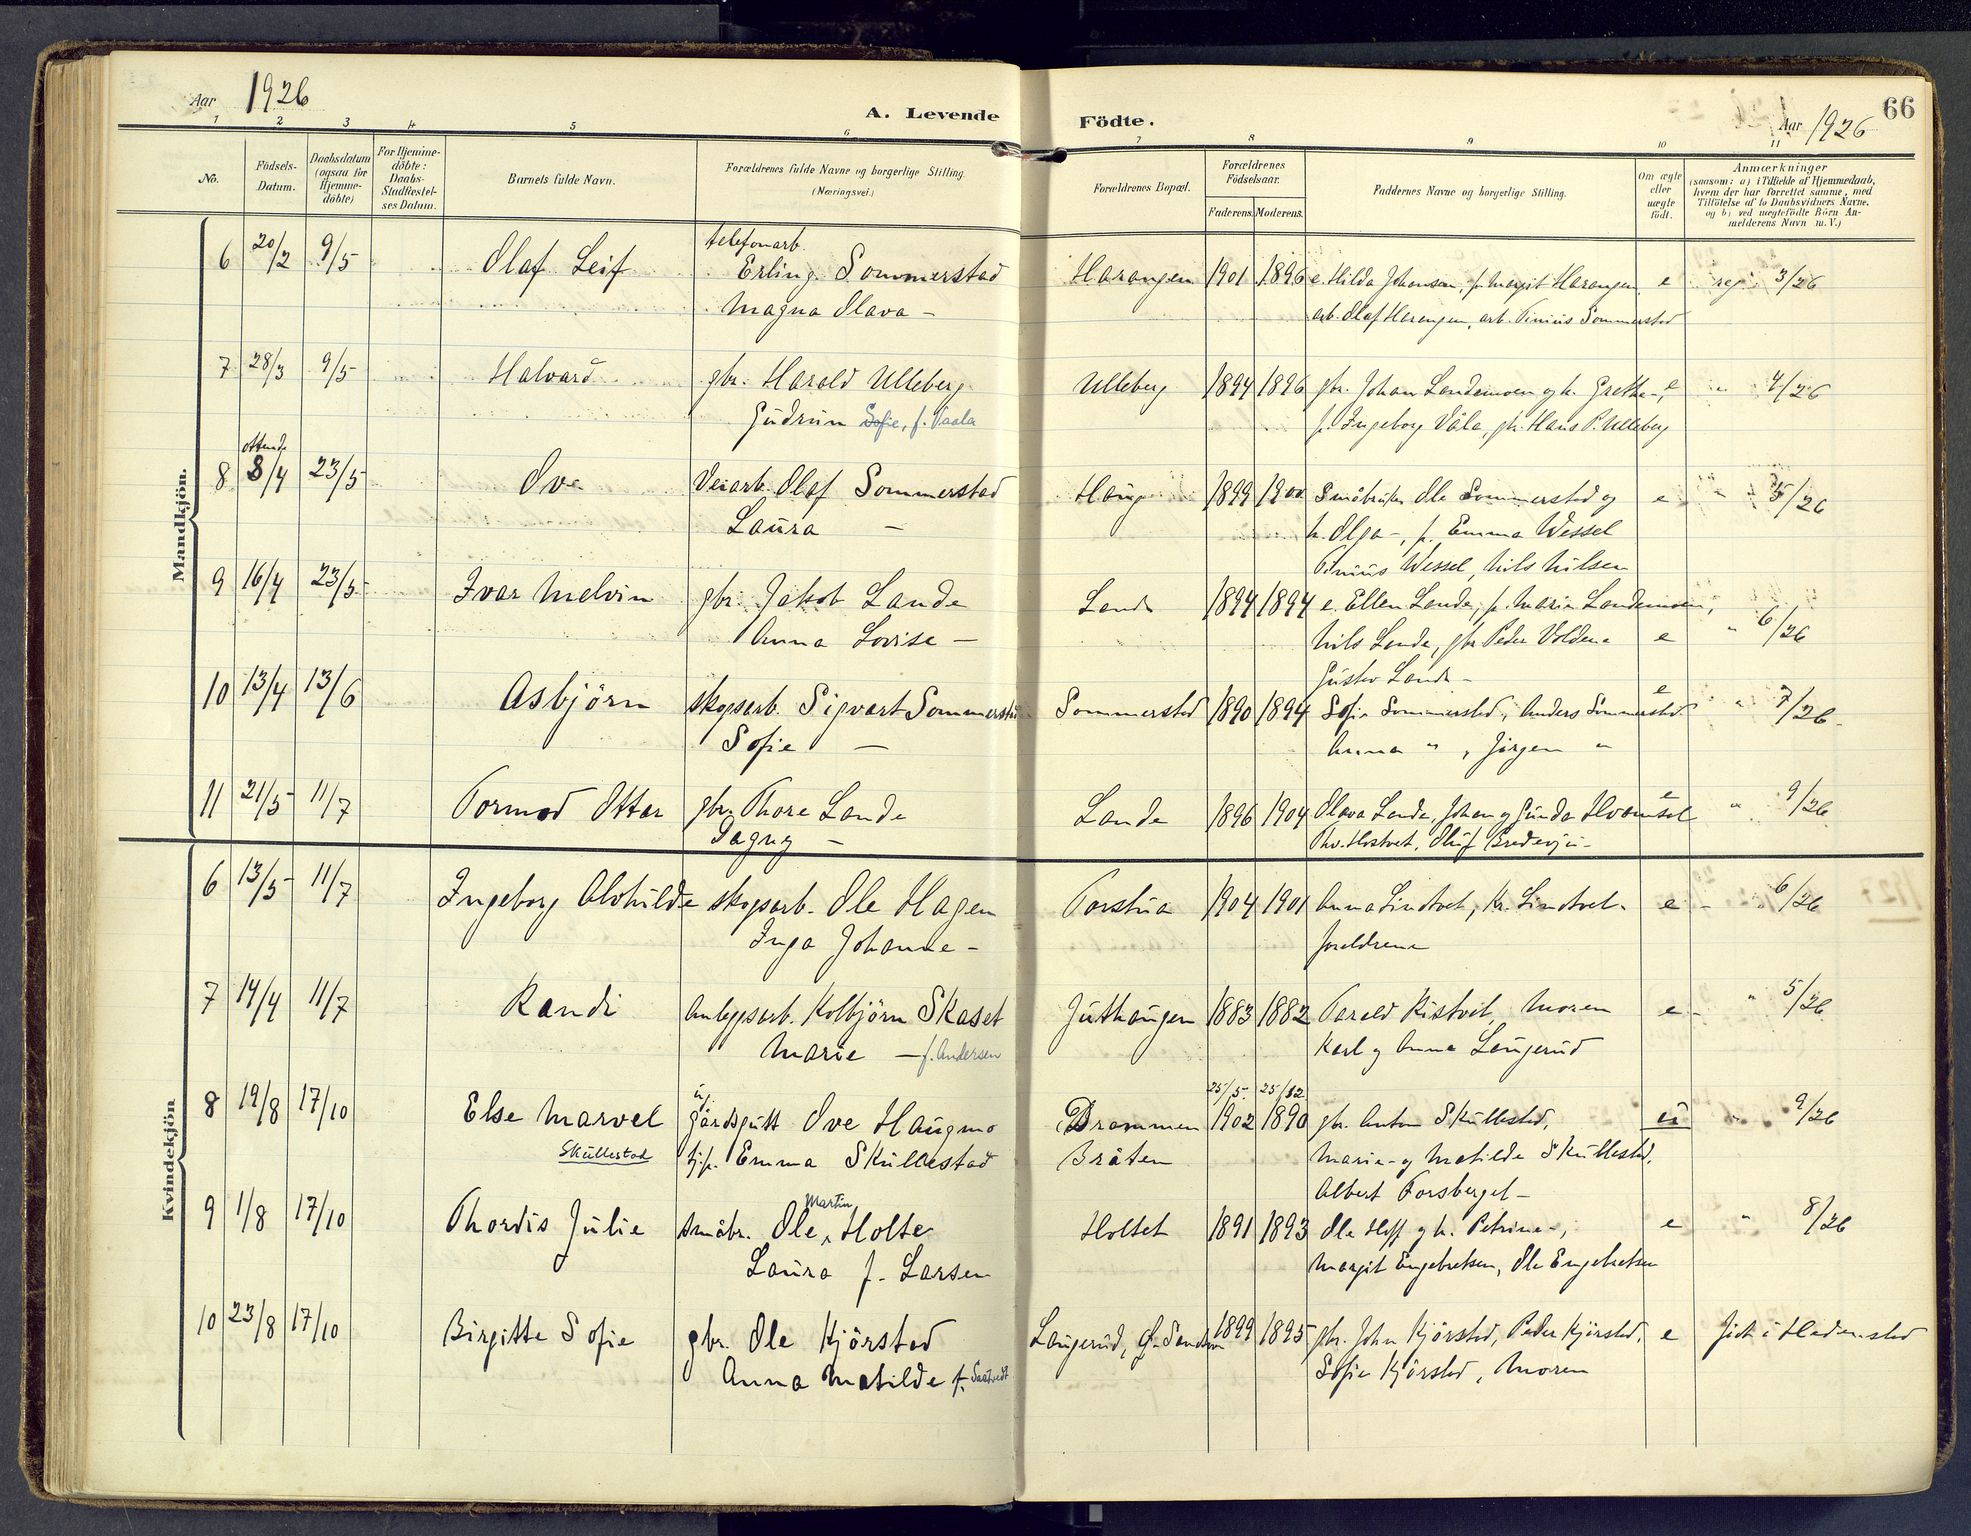 Aar 1926
A. Levende Födte.
Aar 1926
66
1 2 3 4 5 6 7 8 9 10 11
No.
Födsels-Datum.
Daabsdatum (ogsaa for Hjemme-döbte)
For Hjemme-döbte: Daabs-Stadfestel-ses Datum.
Barnets fulde Navn.
Forældrenes fulde Navne og borgerlige Stilling. (Næringsvei.)
Forældrenes Bopæl.
Forældrenes Födselsaar.
Faderens. Moderens.
Faddernes Navne og borgerlige Stilling.
Om ægte eller uægte födt.
Anmærkninger
(saasom: a) i Tilfælde af Hjemmedaab, hvem der har forrettet samme, med Tilföielse af to Daabsvidners Navne. og b) ved uægtefödte Börn An-melderens Navn m. V.)
Mandkjön.
6 20/2 9/5 Olaf Leif telefonarb. Erling Sommerstad Harangen 1901 1896 e. Hilda Johansen, f. Margit Harangen, e reg. 3/26
Magna Olava - arb. Olaf Harangen, arb. Tinius Sommerstad
7 28/3 9/5 Halvard gbr. Harald Ulleberg Ulleberg 1894 1896 gbr. Johan Landemoen og h. Grethe -, e " 4/26
Gudrun Sofie, f. Vaala f. Ingeborg Våla, gbr. Hans P. Ulleberg
ottende
8 8/4 23/5 Ove Veiarb. Olaf Sommerstad Haug 1899 1900 Småbruker Ole Sommerstad og e " 5/26
Laura - h. Olga -, f. Emma Wessel
Tinius Wessel, Nils Nilsen
9 16/4 23/5 Ivar Melvin gbr. Jakob Lande Lande 1894 1894 e. Ellen Lande, f. Marie Landemoen,
Anna Lovise - Nils Lande, gbr Peder Voldene e " 6/26
Gustav Lande -
10 13/4 13/6 Asbjörn skogsarb. Sigvart Sommerstad Sommerstad 1890 1894 Sofie Sommerstad, Anders Sommerstad e " 7/26
Sofie - Anna " , Jörgen "
11 21/5 11/7 Tormod Ottar gbr. Thore Lande Lande 1896 1904 Olava Lande, Johan og Gunda Hvamsal e " 9/26
Dagny - Thv. Hostvet, Oluf
Kvindekjön
6 13/5 11/7 Ingeborg Alvhilde skogsarb. Ole Hagen Torstua 1904 1901 Anna Lindtvet, Kr. Lindtvet - e - 6/26
Inga Johanne - foreldrene
7 14/4 11/7 Randi Anleggsarb. Kolbjörn Skaset Juthaugen 1883 1882 Harald Kistvet, Moren e - " 5/26
Marie - f. Andersen Karl og Anna Laugerud
25/5 - 25/12
8 19/8 17/10 Else Marvel ug. gårdsgutt Ove Haugmo Drammen 1902 1890 gbr. Anton Skullestad, u " 9/26
Skullestad tj.p. Emma Skullestad Bråten Marie - og Matilde Skullestad,
Albert Forsberget -
9 1/8 17/10 Thordis Julie småbr. Ole Martin Holte Holtet 1891 1893 Ole Hoff og h. Petrine -, e " 8/26
Laura f. Larsen Margit Engebretsen, Ole Engebretsen
10 23/8 17/10 Birgitte Sofie gbr. Ole Kjörstad Laugerud, 1899 1895 gbr. John Kjörstad, Peder Kjörstad, e född i Hedenstad
Anna Matilde f. Saatvedt Sofie Kjörstad, Moren